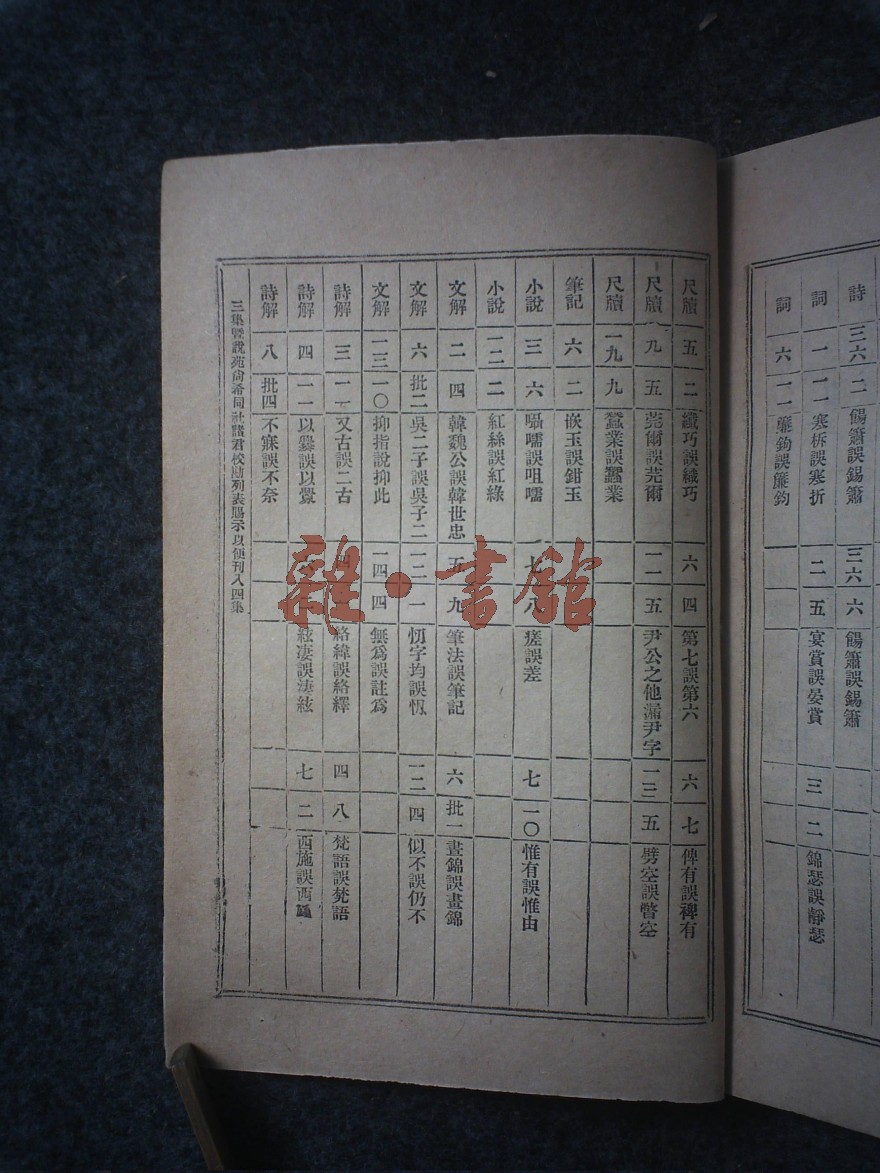 詩 三六 二 餳簫誤錫簫 三六 六 餳簫誤錫簫
詞 一 一一 寒柝誤寒折 二 五 宴賞誤晏賞 三 二 錦瑟誤靜瑟
詞 六 一一 簾鉤誤簾鈞
尺牘 五 二 纖巧誤織巧 六 四 第七誤第六 六 七 俾有誤裨有
尺牘 九 五 莞爾誤芫爾 一二 五 尹公之他漏尹字 一三 五 劈空誤瞥空
尺牘 一九 九 蠶業誤蠶業
筆記 六 二 嵌玉誤鉗玉
小說 三 六 囁嚅誤咀嚅 一七 八 瘥誤差 七 一〇 惟有誤惟由
小說 一二 二 紅絲誤紅綠
文解 二 四 韓魏公誤韓世忠 五 九 筆法誤筆記 六 批一 晝錦誤畫錦
文解 六 批二 吳二子誤吳子二 一二 一 忉字均誤忛 一二 四 似不誤仍不
文解 一三 一〇 抑指說抑此 一四 四 無爲誤註爲
詩解 三 一一 又古誤二古 四 絡緯誤絡繹 四 八 梵語誤棼語
詩解 四 一一 以釁誤以鱟 六 絃淒誤淒絃 七 二 西施誤西
詩解 八 批四 不寐誤不奈
三集暨說苑尚希同社諸君校勘列表賜示以便刊入四集
雜·書館